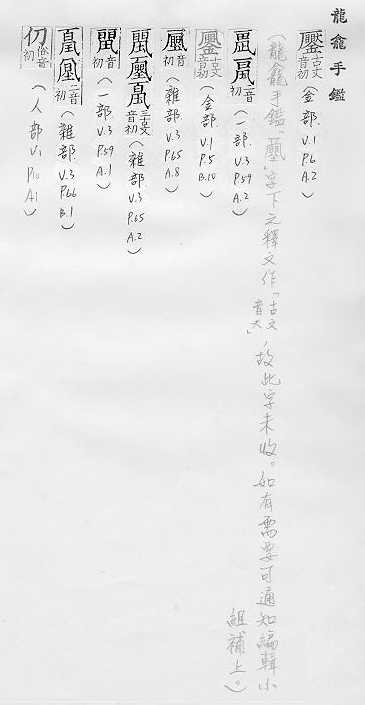 龍龕手鑑
古文音初(金部.V.1 P.6 A.2)
(龍龕手鑑「」字下之釋文作「古文音大」,故此字未收。如有需要可通知編輯小組補上。)
音初(一部.V.3 P.59 A.2)
古文音初(金部.V.1 P.5 B.10)
音初(雜部.V.3 P.65 A.8)
三古文音初(雜部.V.3 P.65 A.2)
音初(一部.V.3 P.59 A.1)
二音初(雜部.V.3 P.66 B.1)
㐋俗音初(人部V1 P10 A1)